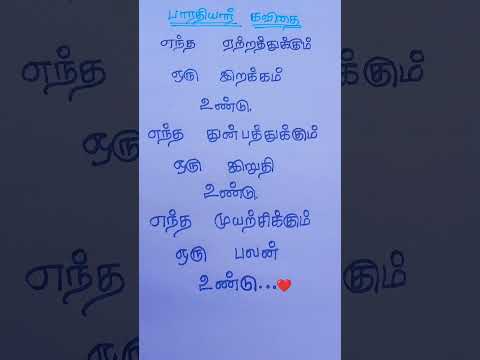 பாரதியார் கவிதை
எந்த ஏற்றத்துக்கும்
ஒரு இறக்கம்
உண்டு.
எந்த துன்பத்துக்கும்
ஒரு இறுதி
உண்டு.
எந்த முயற்சிக்கும்
ஒரு பலன்
உண்டு...❤️